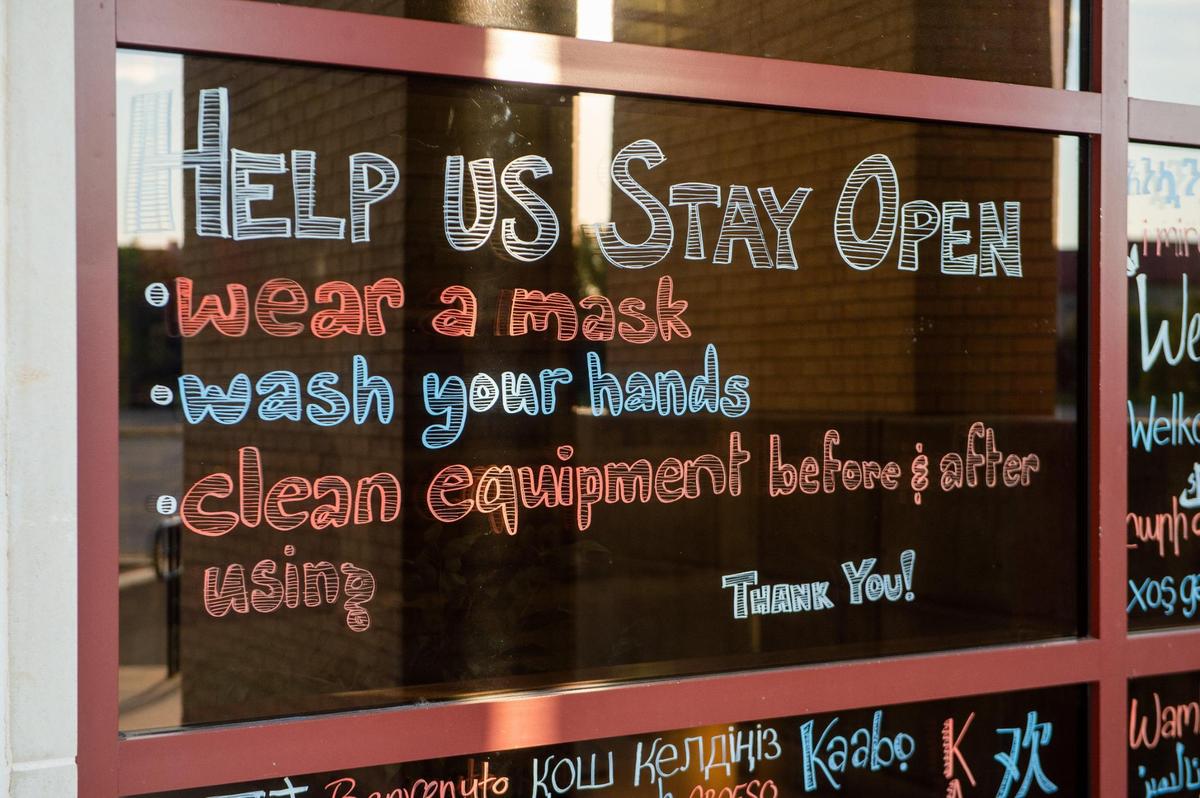 HELP US STAY OPEN
• wear a mask
• wash your hands
• clean equipment before & after
using
THANK YOU!
Benvenuto
КОШ КЕЛДІҢІЗ
Kaabo
欢
We
Welko
xoş ge
Wam